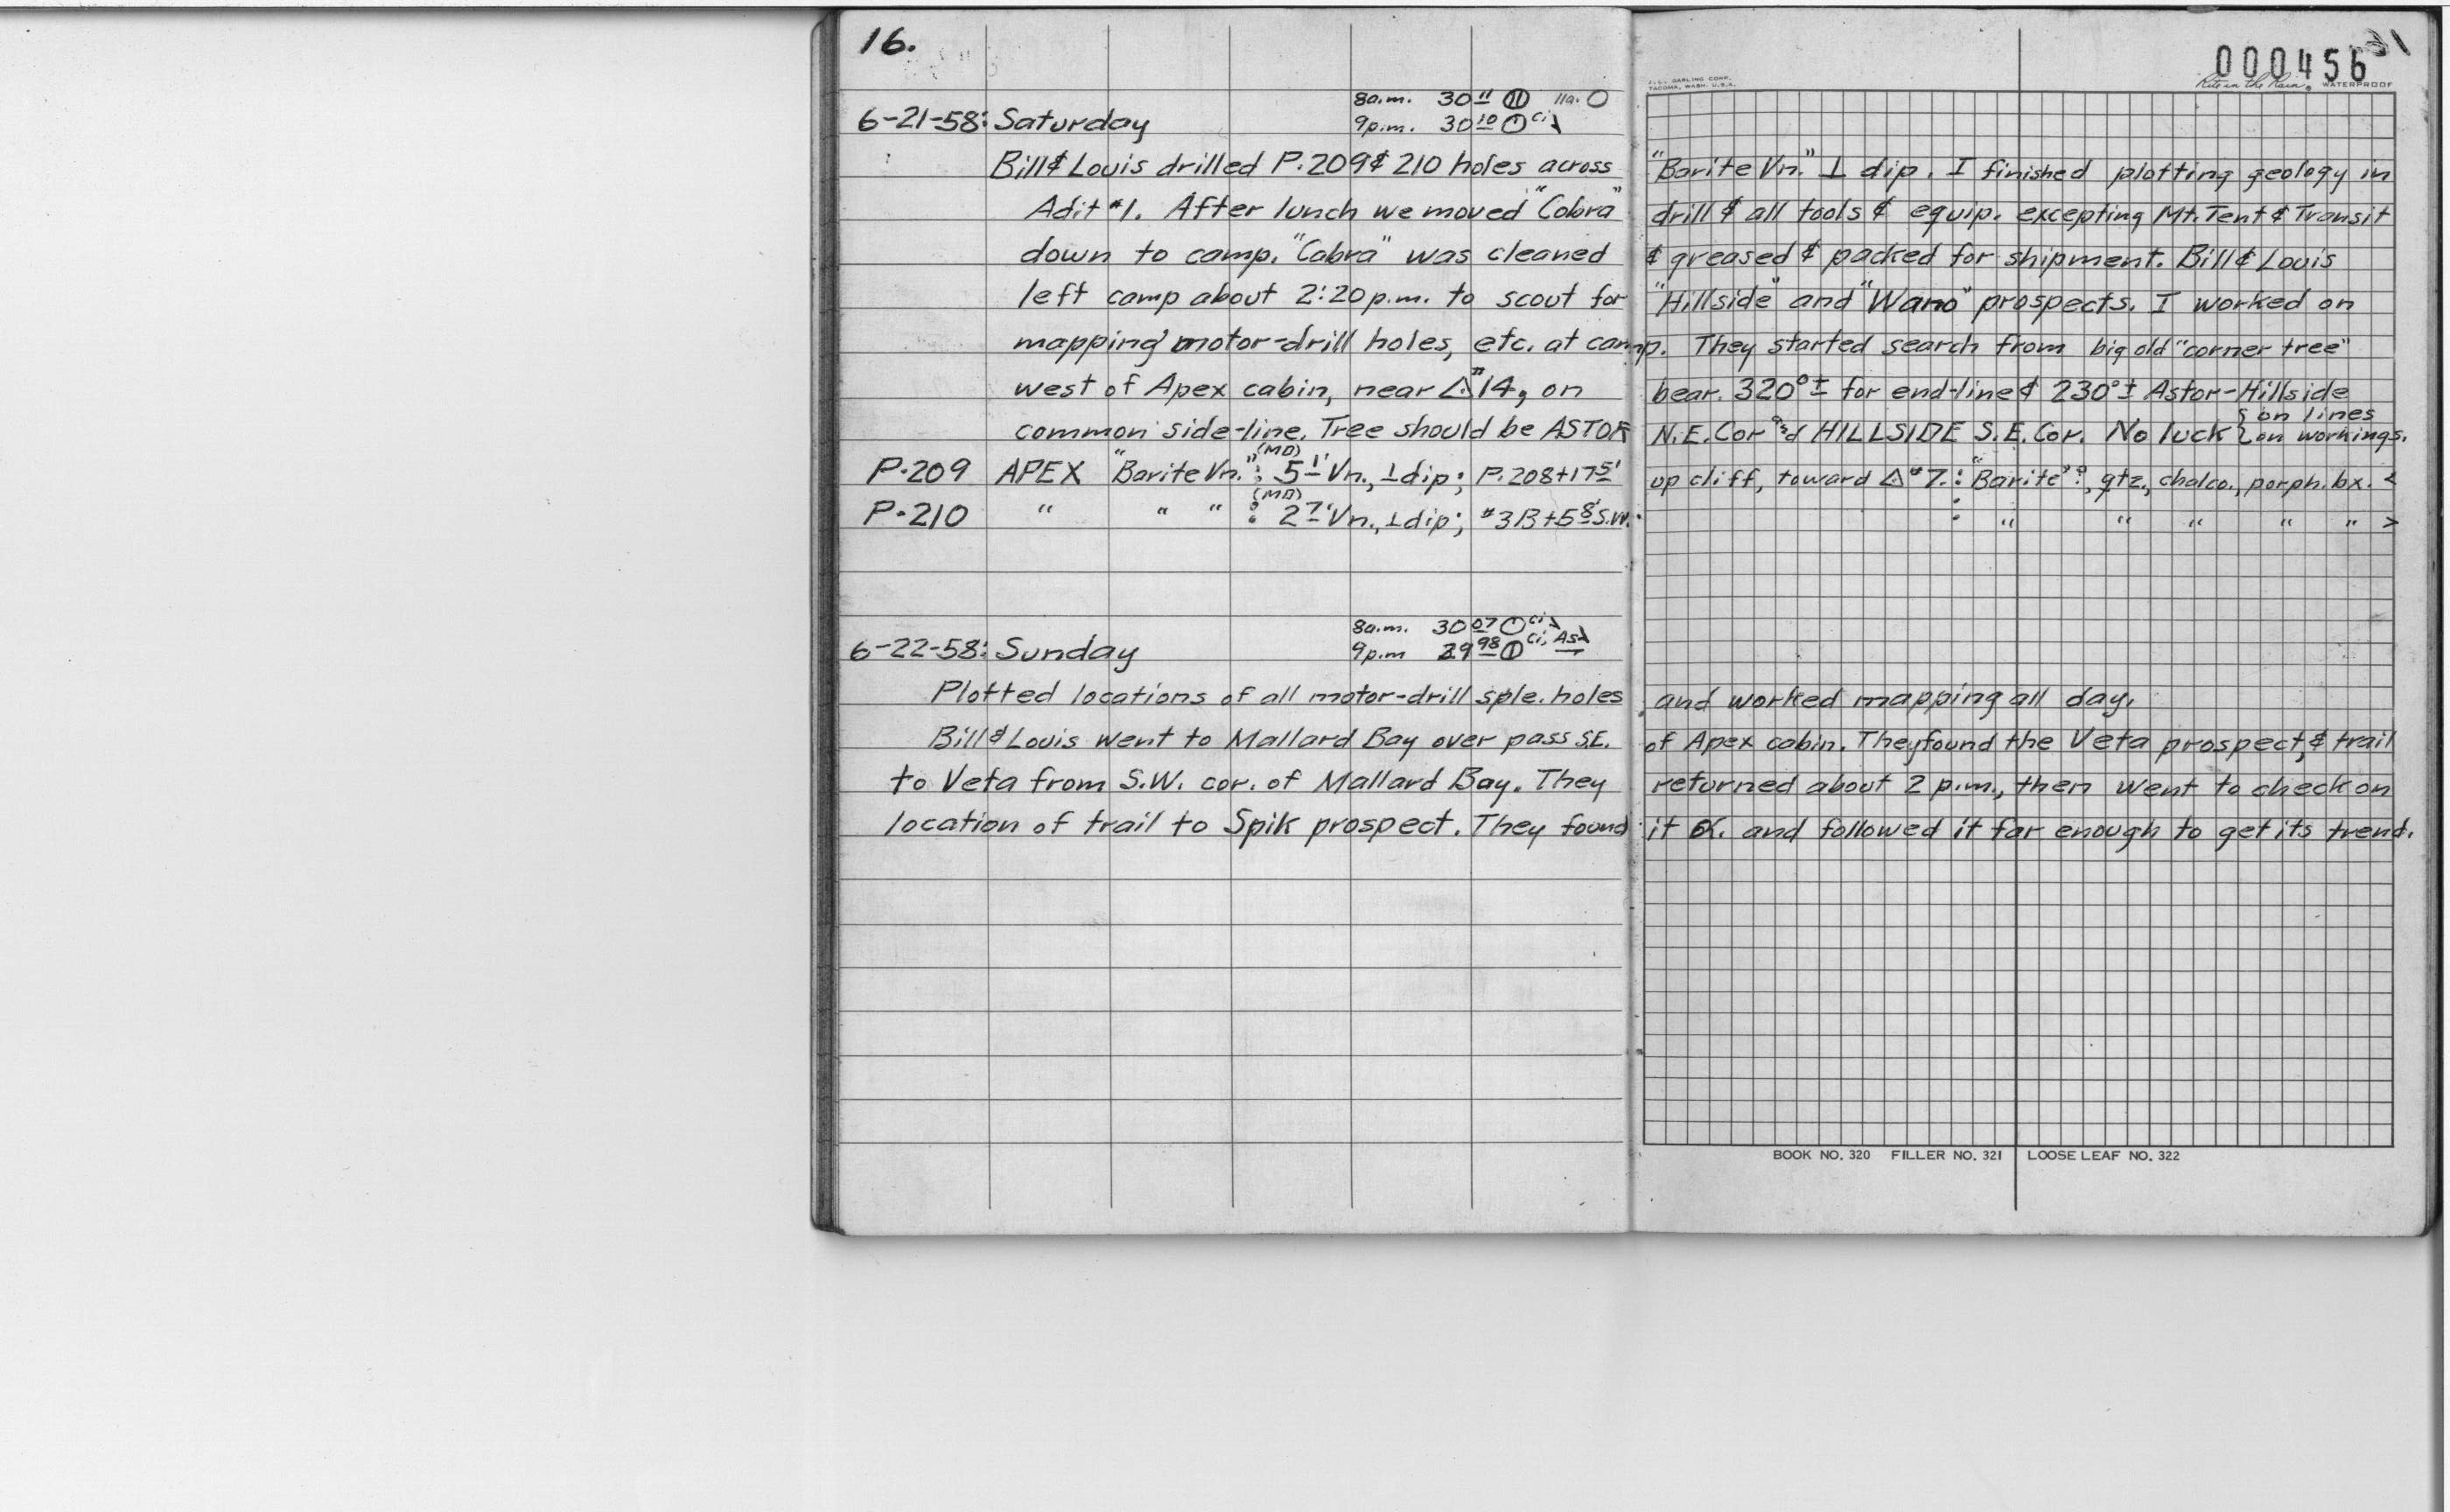 16.
000456
J. L. DARLING CORP.
TACOMA, WASH. U.S.A.
Rite in the Rain WATERPROOF
8a.m. 30 11 11a.
6-21-58: Saturday 9p.m. 30 10 Ci
Bill & Louis drilled P.209 & 210 holes across "Barite Vn." ⊥ dip. I finished plotting geology in
Adit #1. After lunch we moved "Cobra" drill & all tools & equip. excepting Mt. Tent & Transit
down to camp. "Cobra" was cleaned & greased & packed for shipment. Bill & Louis
left camp about 2:20 p.m. to scout for "Hillside" and "Wano" prospects. I worked on
mapping motor-drill holes, etc. at camp. They started search from big old "corner tree"
west of Apex cabin, near △#14, on bear. 320°± for end-line & 230°± Astor-Hillside
common side-line. Tree should be ASTOR N.E. Cor and HILLSIDE S.E. Cor. No luck { on lines
on workings.
P-209 APEX "Barite Vn." (MD): 5 1' Vn., ⊥ dip; P.208+17 5' up cliff, toward △#7.: "Barite"?, qtz., chalco., porph. bx. <
P-210 " " " (MD): 2 7' Vn., ⊥ dip; #3B+5 8' S.W. : " " " " " >
8a.m. 30 07 Ci
6-22-58: Sunday 9p.m 29 98 Ci, As
Plotted locations of all motor-drill sple. holes and worked mapping all day.
Bill & Louis went to Mallard Bay over pass S.E. of Apex cabin. They found the Veta prospect, & trail
to Veta from S.W. cor. of Mallard Bay. They returned about 2 p.m., then went to check on
location of trail to Spik prospect. They found it OK. and followed it far enough to get its trend.
BOOK NO. 320 FILLER NO. 321 LOOSE LEAF NO. 322